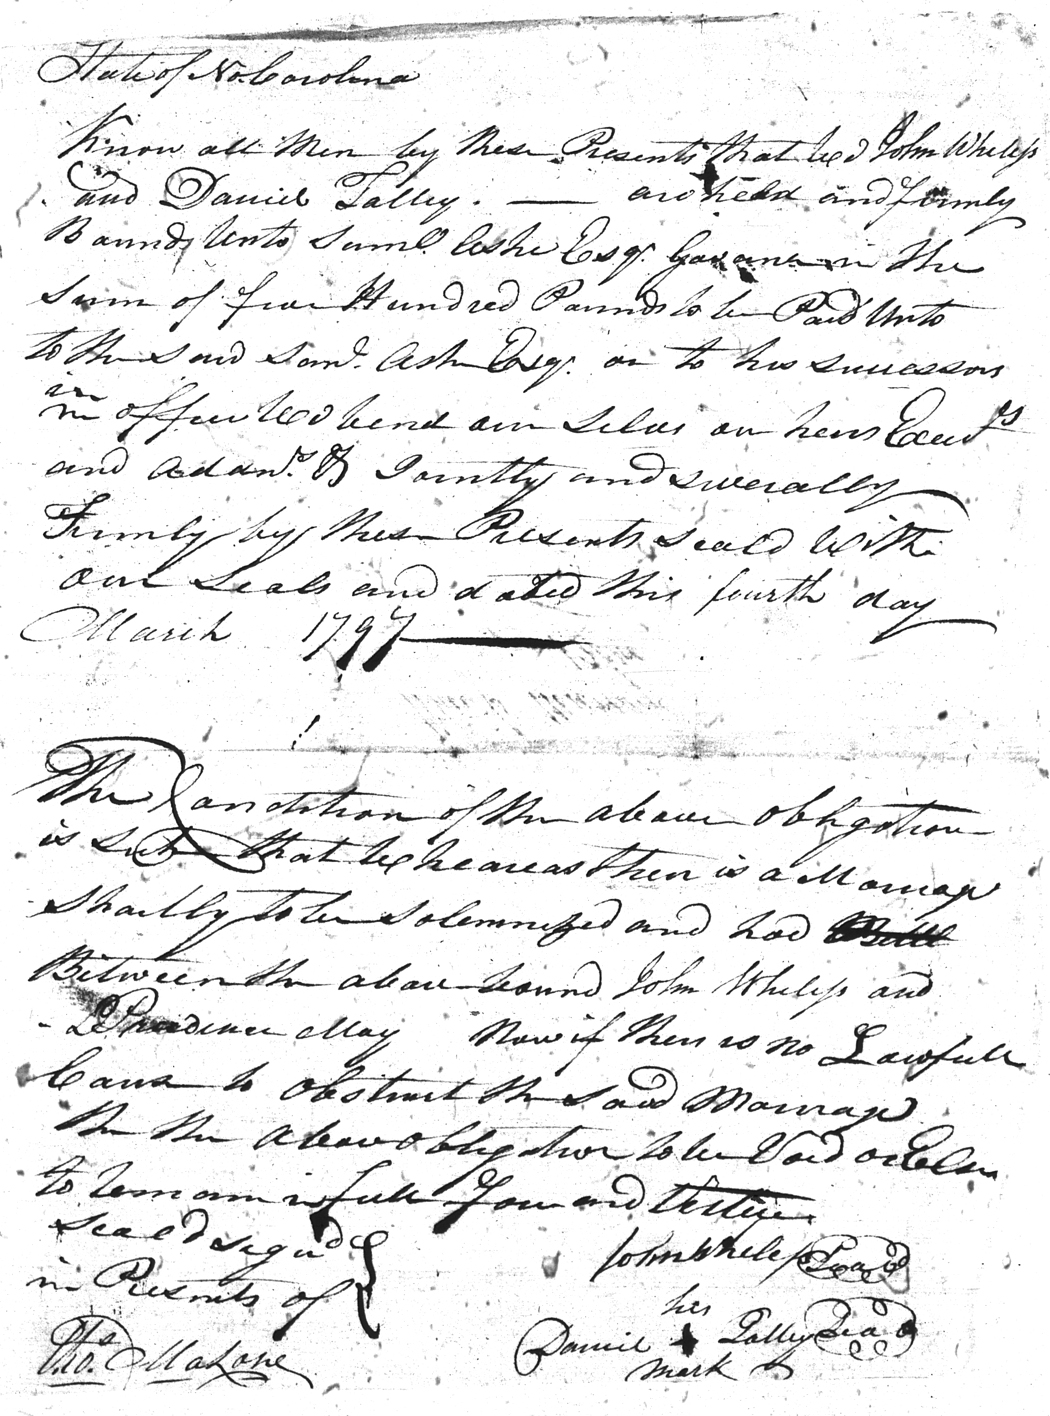 State of No. Carolina
Know all Men by these Presents that We John Wheless
and Daniel Talley. — are held and firmly
Bound Unto Saml. Ashe Esqr. Governer in the
Sum of five Hundred Pounds to be Paid Unto
to the said Saml. Ash Esqr. or to his successors
in
in office We bend our Selves our heirs Exers
and Adams. Jointly and severally
Firmly by these Presents Seald With
our Seals and dated this fourth day
March 1797
The Condition of the above obligation
is Such that Wheareas there is a Marriage
Shortly to be Solemnized and had
Between the above bound John Wheless and
Prudence May Now if there is no Lawfull
Caus to obstruct the said Marriage
the the above obligation to be Void or Else
to remain in full force and Virtue
Seald Signd
in Presents of
Thos. Malone
John Wheless Seal
his
Daniel + Talley Seal
mark